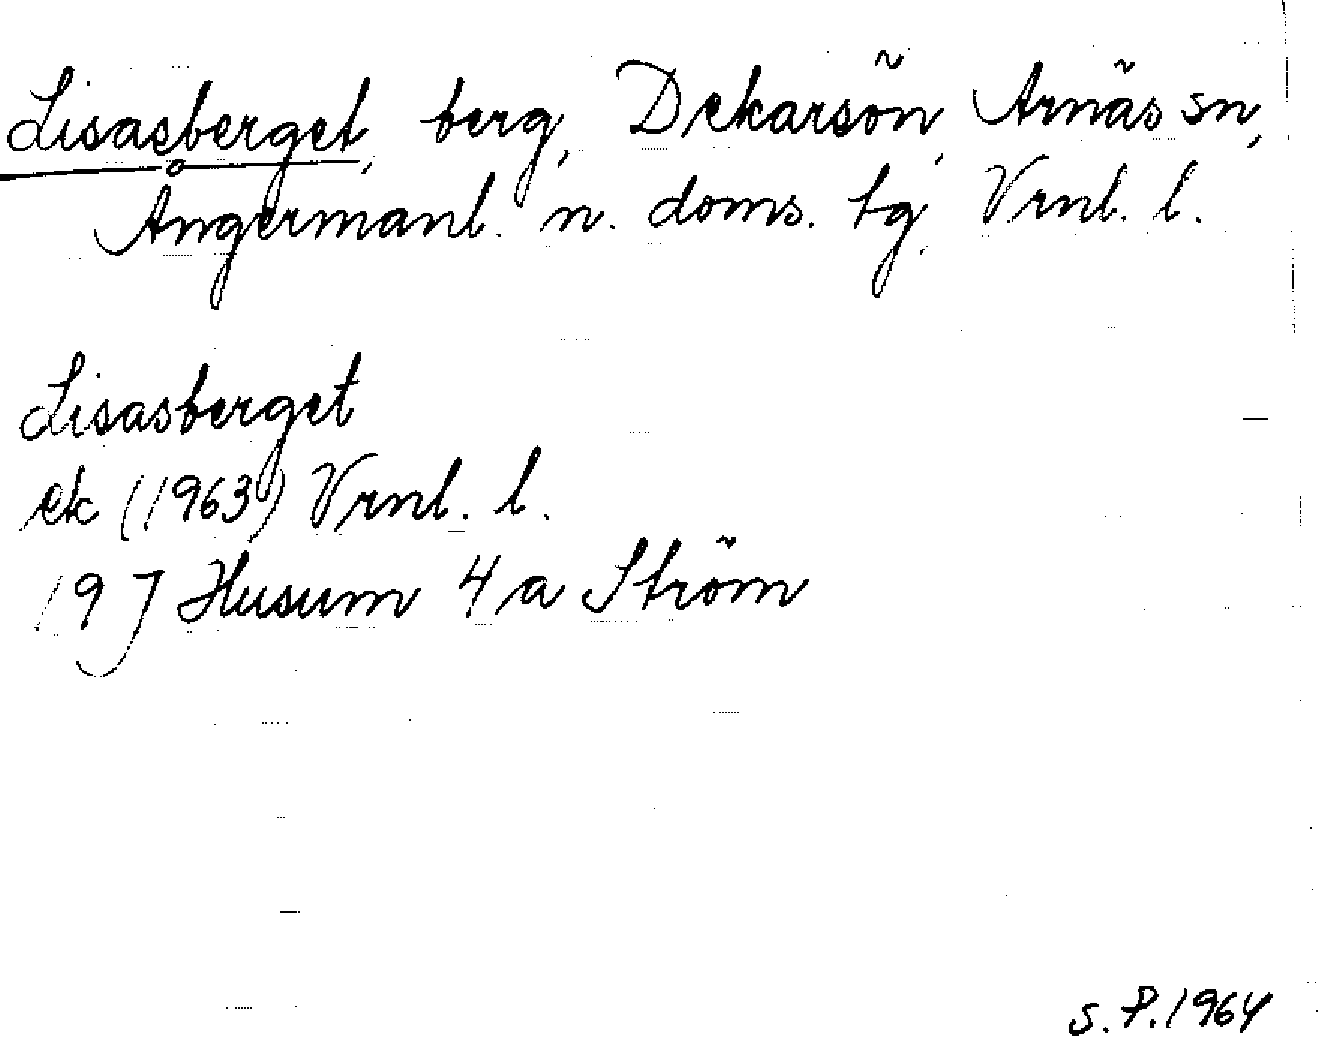 Lisasberget, berg, Dekarsön, Arnäs sn,
Ångermanl. n. doms. tg, Vrnl. l.
Lisasberget
ek (1963) Vrnl. l.
19 J Husum 4 a Ström
S. P. 1964